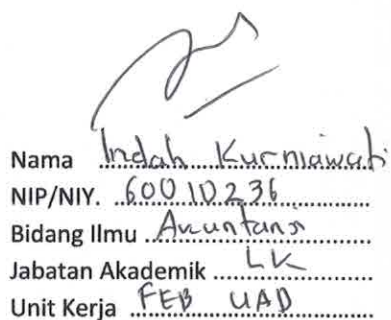 Nama Indah Kurniawati
NIP/NIY. 60010236
Bidang Ilmu Akuntansi
Jabatan Akademik LK
Unit Kerja FEB UAD